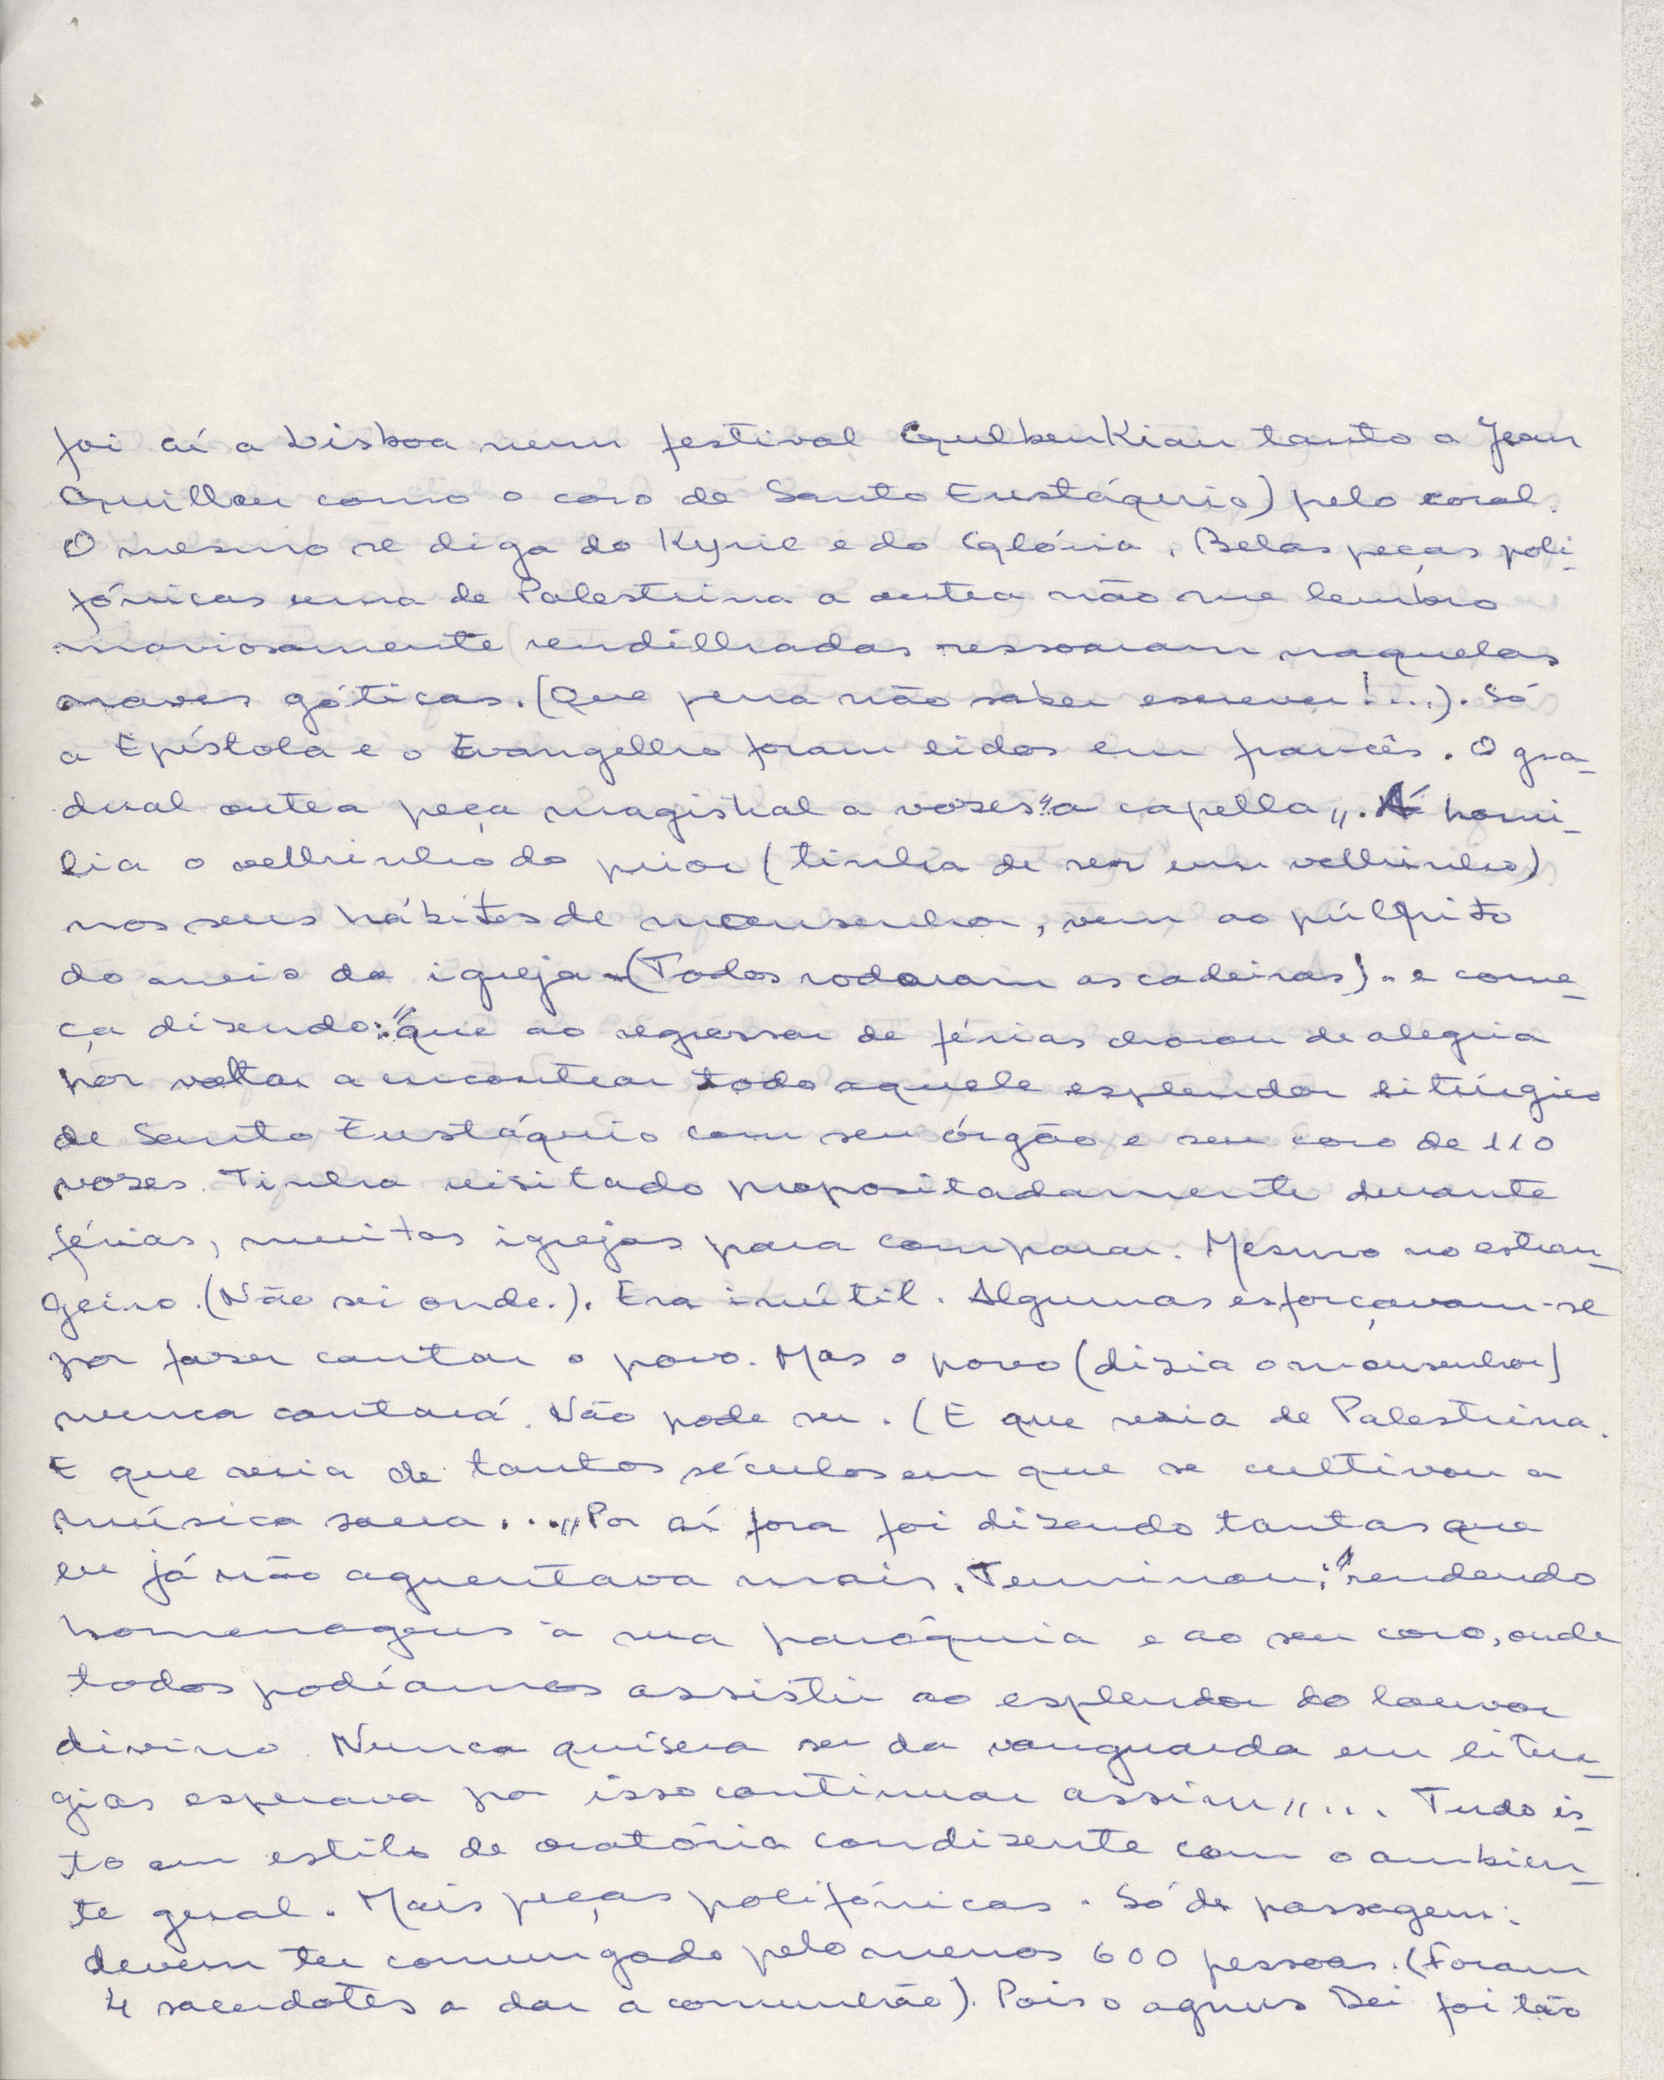 foi aí a Lisboa num festival Gulbenkian tanto o Jean
Guillou como o coro de Santo Eustáquio) pelo coral.
O mesmo se diga do Kyrie e do Glória. Belas peças poli-
fónicas uma de Palestrina a outra não me lembro
maviosamente rendilhadas ressoaram naquelas
naves góticas. (Que pena não saber escrever!...). Só
a Epístola e o Evangelho foram lidos em francês. O gra-
dual outra peça magistral a vozes "a capella". À homi-
lia o velhinho do prior (tinha de ser um velhinho)
nos seus hábitos de monsenhor, vem ao púlpito
do meio da igreja - (Todos rodaram as cadeiras) - e come-
ça dizendo: "que ao regressar de férias chorou de alegria
por voltar a encontrar todo aquele esplendor litúrgico
de Santo Eustáquio com seu órgão e seu coro de 110
vozes. Tinha visitado propositadamente durante
férias, muitas igrejas para comparar. Mesmo no estran-
geiro. (Não sei onde.). Era inútil. Algumas esforçavam-se
por fazer cantar o povo. Mas o povo (dizia o monsenhor)
nunca cantará. Não pode ser. (E que seria de Palestrina.
E que seria de tantos séculos em que se cultivou a
música sacra..." Por aí fora foi dizendo tantas que
eu já não aguentava mais. Terminou: "rendendo
homenagens à sua paróquia e ao seu coro, onde
todos podíamos assistir ao esplendor do louvor
divino. Nunca quisera ser da vanguarda em litur-
gias esperava por isso continuar assim"... Tudo is-
to em estilo de oratória condizente com o ambien-
te geral. Mais peças polifónicas. Só de passagem:
devem ter comungado pelo menos 600 pessoas. (Foram
4 sacerdotes a dar a comunhão). Pois o agnus Dei foi tão